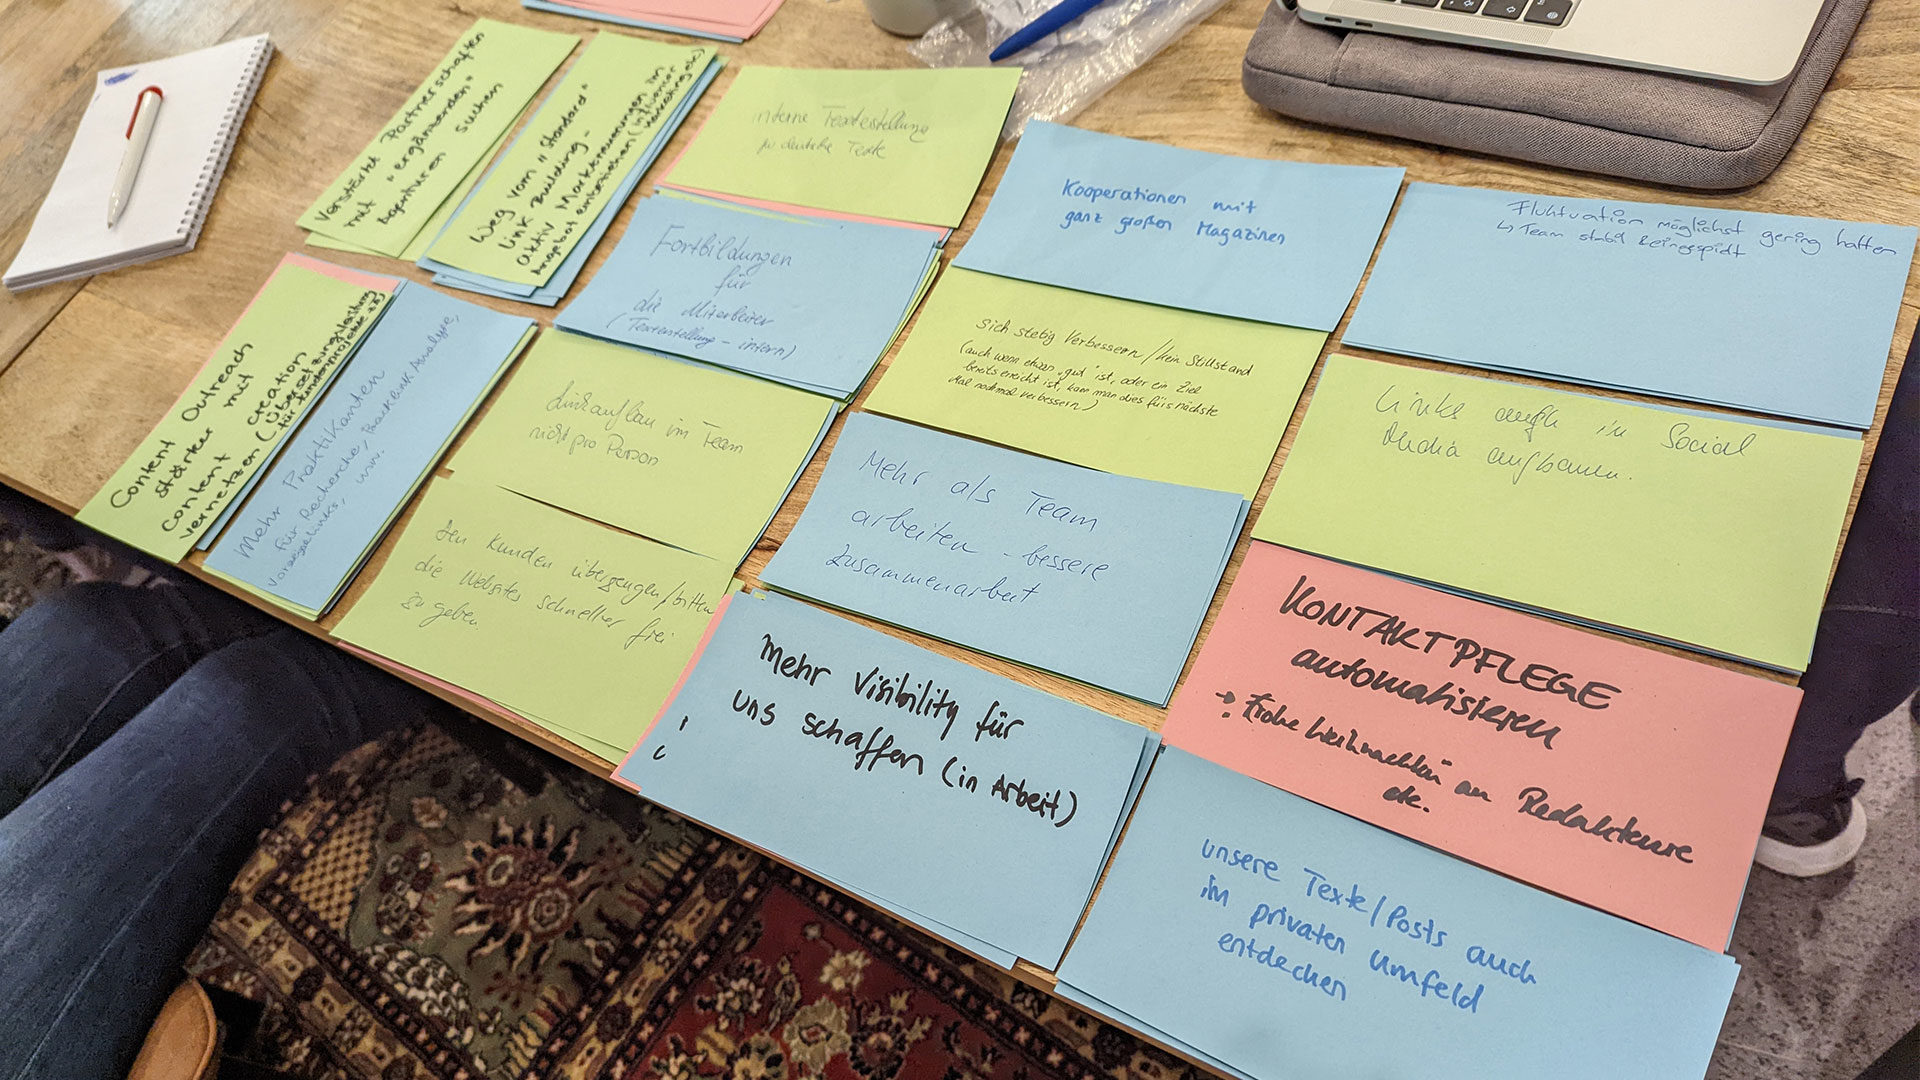 Verstärkt Partnerschaften
mit "ergänzenden"
Agenturen suchen
Weg vom "Standard"
Link Building -
aktiv Marktneuerungen im
Angebot einbeziehen (Influencer
Marketing etc)
interne Texterstellung
für deutsche Texte
Kooperationen mit
ganz großen Magazinen
Fluktuation möglichst gering halten
↳ Team stabil & eingespielt
Fortbildungen
für
die Mitarbeiter
(Texterstellung - intern)
Content Outreach
stärker mit
Content Creation
vernetzen (Übersetzungsleistung
für Kundenprojekte z.B.)
Mehr Praktikanten
für Recherche, Backlink Analyse,
Vorzeigelinks, usw.
Linkaufbau im Team
nicht pro Person
Sich stetig Verbessern / kein Stillstand
(auch wenn etwas "gut" ist, oder ein Ziel
bereits erreicht ist, kann man dies fürs nächste
Mal nochmal verbessern)
Links auch in Social
Media aufbauen.
Den Kunden überzeugen/bitten
die Websites schneller frei
zu geben.
Mehr als Team
arbeiten - bessere
Zusammenarbeit
KONTAKTPFLEGE
automatisieren
→ Frohe Weihnachten an Redakteure
etc.
Mehr Visibility für
uns schaffen (in Arbeit)
unsere Texte/Posts auch
im privaten Umfeld
entdecken